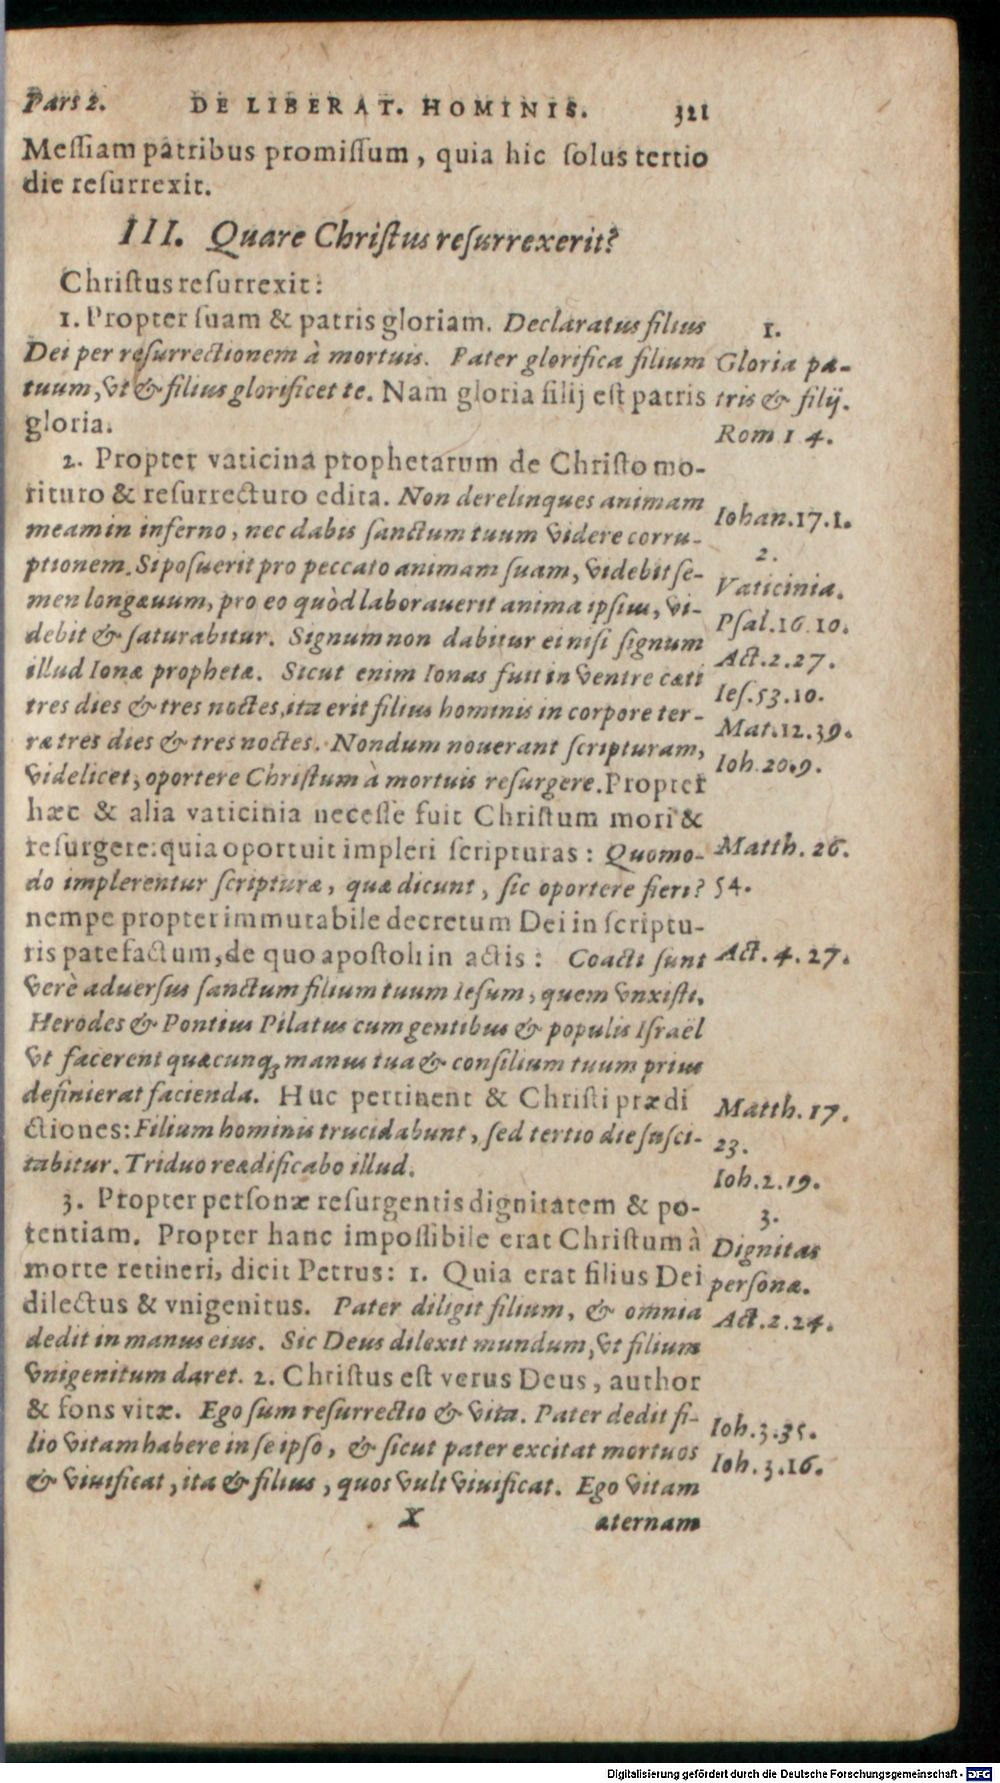 Pars 2. DE LIBERAT. HOMINIS. 321
Meſſiam patribus promiſſum, quia hic ſolus tertio
die reſurrexit.
III. Quare Chriſtus reſurrexerit?
Chriſtus reſurrexit:
1. Propter ſuam & patris gloriam. Declaratus filius
Dei per reſurrectionem à mortuis. Pater glorifica filium
tuum, vt & filius glorificet te. Nam gloria filij eſt patris
gloria.
2. Propter vaticina prophetarum de Chriſto mo-
rituro & reſurrecturo edita. Non derelinques animam
meam in inferno, nec dabis ſanctum tuum videre corru-
ptionem. Si poſuerit pro peccato animam ſuam, videbit ſe-
men longæuum, pro eo quòd laborauerit anima ipſius, vi-
debit & ſaturabitur. Signum non dabitur ei niſi ſignum
illud Ionæ prophetæ. Sicut enim Ionas fuit in ventre cæti
tres dies & tres noctes, ita erit filius hominis in corpore ter-
ræ tres dies & tres noctes. Nondum nouerant ſcripturam,
videlicet, oportere Chriſtum à mortuis reſurgere. Propter
hæc & alia vaticinia neceſſe fuit Chriſtum mori &
reſurgere: quia oportuit impleri ſcripturas: Quomo-
do implerentur ſcripturæ, quæ dicunt, ſic oportere fieri?
nempe propter immutabile decretum Dei in ſcriptu-
ris patefactum, de quo apoſtoli in actis: Coacti ſunt
verè aduerſus ſanctum filium tuum Ieſum, quem vnxiſti,
Herodes & Pontius Pilatus cum gentibus & populis Iſraël
vt facerent quæcunq; manus tua & conſilium tuum prius
definierat facienda. Huc pertinent & Chriſti prædi
ctiones: Filium hominis trucidabunt, ſed tertio die ſuſci-
tabitur. Triduo reædificabo illud.
3. Propter perſonæ reſurgentis dignitatem & po-
tentiam. Propter hanc impoſſibile erat Chriſtum à
morte retineri, dicit Petrus: 1. Quia erat filius Dei
dilectus & vnigenitus. Pater diligit filium, & omnia
dedit in manus eius. Sic Deus dilexit mundum, vt filium
vnigenitum daret. 2. Chriſtus eſt verus Deus, author
& fons vitæ. Ego ſum reſurrectio & vita. Pater dedit fi-
lio vitam habere in ſe ipſo, & ſicut pater excitat mortuos
& viuificat, ita & filius, quos vult viuificat. Ego vitam
X æternam
1.
Gloria pa-
tris & filij.
Rom 1 4.
Iohan. 17. 1.
2.
Vaticinia.
Pſal. 16 10.
Act. 2. 27.
Ieſ. 53. 10.
Mat. 12. 39.
Ioh. 20. 9.
Matth. 26.
54.
Act. 4. 27.
Matth. 17.
23.
Ioh. 2. 19.
3.
Dignitas
perſonæ.
Act. 2. 24.
Ioh. 3. 35.
Ioh. 3. 16.
Digitalisierung gefördert durch die Deutsche Forschungsgemeinschaft - DFG